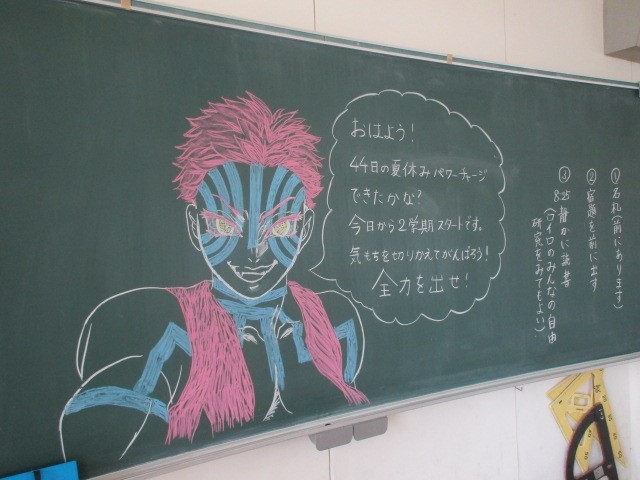 おはよう！
44日の夏休みパワーチャージ
できたかな？
今日から2学期スタートです。
気もちを切りかえてがんばろう！
全力を出せ！
①名札(前にあります)
②宿題を前に出す
③8:25静かに読書
(ロイロのみんなの自由
研究をみてもよい)